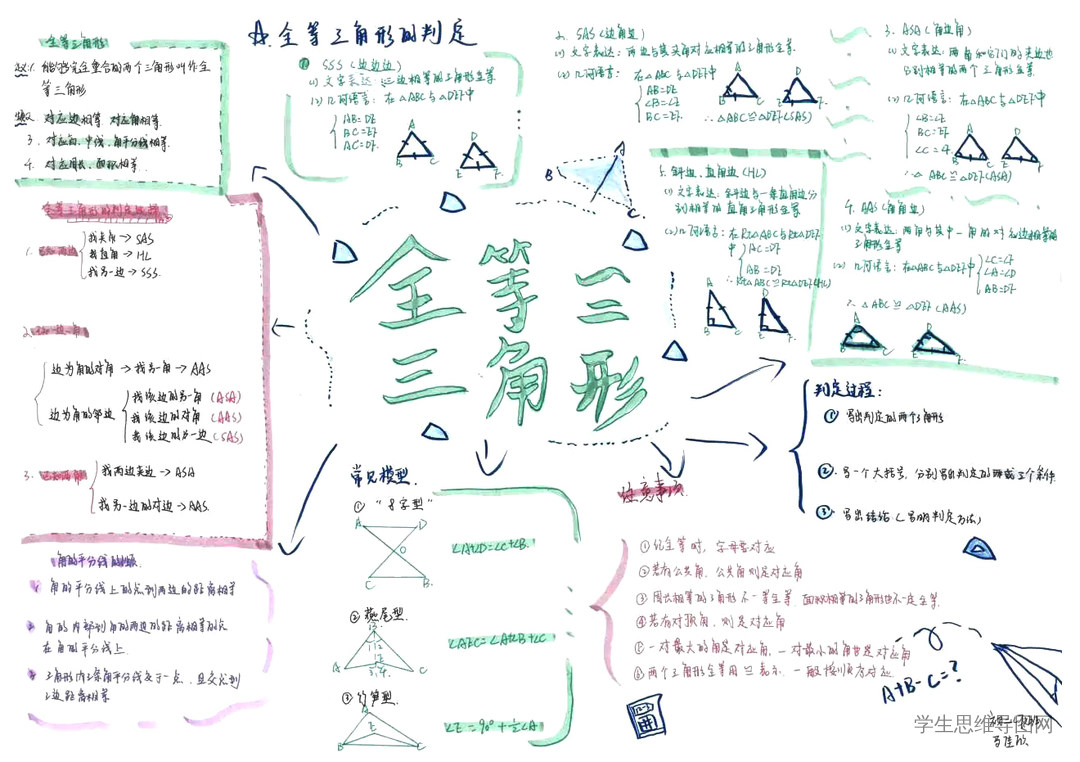 全等三角形
定义:1. 能够完全重合的两个三角形叫作全
等三角形
性质2. 对应边相等 对应角相等.
3. 对应高、中线、角平分线相等.
4. 对应周长、面积相等.
A. 全等三角形的判定
① SSS(边边边)
(1) 文字表达: 三边相等的三角形全等
(2) 几何语言: 在△ABC与△DEF中
AB=DE
BC=EF
AC=DF.
A
B
C
D
E
F
2. SAS(边角边)
(1) 文字表达: 两边与其夹角对应相等的三角形全等.
(2) 几何语言: 在△ABC与△DEF中
AB=DE
∠B=∠E
BC=EF.
∴△ABC≌△DEF(SAS)
A
B
C
D
E
F
3. ASA(角边角)
(1) 文字表达: 两角和它们的夹边也
分别相等的两个三角形全等.
(2) 几何语言: 在△ABC与△DEF中
∠B=∠E
BC=EF
∠C=∠F.
∴△ABC≌△DEF(ASA)
A
B
C
D
E
F
4. AAS(角角边)
(1) 文字表达: 两角与其中一角的对应边相等的
三角形全等
(2) 几何语言: 在△ABC与△DEF中
∠C=∠F
∠A=∠D
AB=DF
∴△ABC≌△DEF(AAS)
A
B
C
D
E
F.
5. 斜边、直角边(HL)
(1) 文字表达: 斜边与一条直角边分
别相等的直角三角形全等
(2) 几何语言: 在Rt△ABC与Rt△DEF
中
AC=DF
AB=DE
∴Rt△ABC≌Rt△DEF(HL)
A
B
C
D
E
F.
A
B
C
全等三角形的判定思路
1. 已知两边
找夹角→SAS
找直角→HL
找另一边→SSS.
2. 已知一边一角
边为角的对角→找另一角→AAS
边为角的邻边
找该边的另一角(ASA)
找该边的对角(AAS)
找该边的另一边(SAS)
3. 已知两角
找两边夹边→ASA
找另一边的对边→AAS.
全等三角形
判定过程:
① 写出判定的两个三角形
② 写一个大括号, 分别写出判定的理由三个条件.
③ 写出结论(写明判定方法)
角的平分线的性质.
角的平分线上的点到两边的距离相等
角的内部到角的两边的距离相等的点
在角的平分线上.
三角形内三条角平分线交于一点, 且交点到
三边距离相等
常见模型.
① “8字型”
A
D
O
C
B.
∠A+∠D=∠C+∠B.
② 燕尾型
B
A
C
∠AEC=∠A+∠B+∠C
③ 竹笋型
A
E
B
C
∠E=90°+½∠A
注意事项.
① 化全等时, 字母要对应
② 若有公共角、公共角则是对应角
③ 周长相等的三角形不一定全等. 面积相等的三角形也不一定全等.
④ 若有对顶角、则是对应角
⑤ 一对最大的角是对应角、一对最小的角也是对应角
⑥ 两个三角形全等用≌表示、一般按顺序对应
A+B-C=?
学生思维导图网